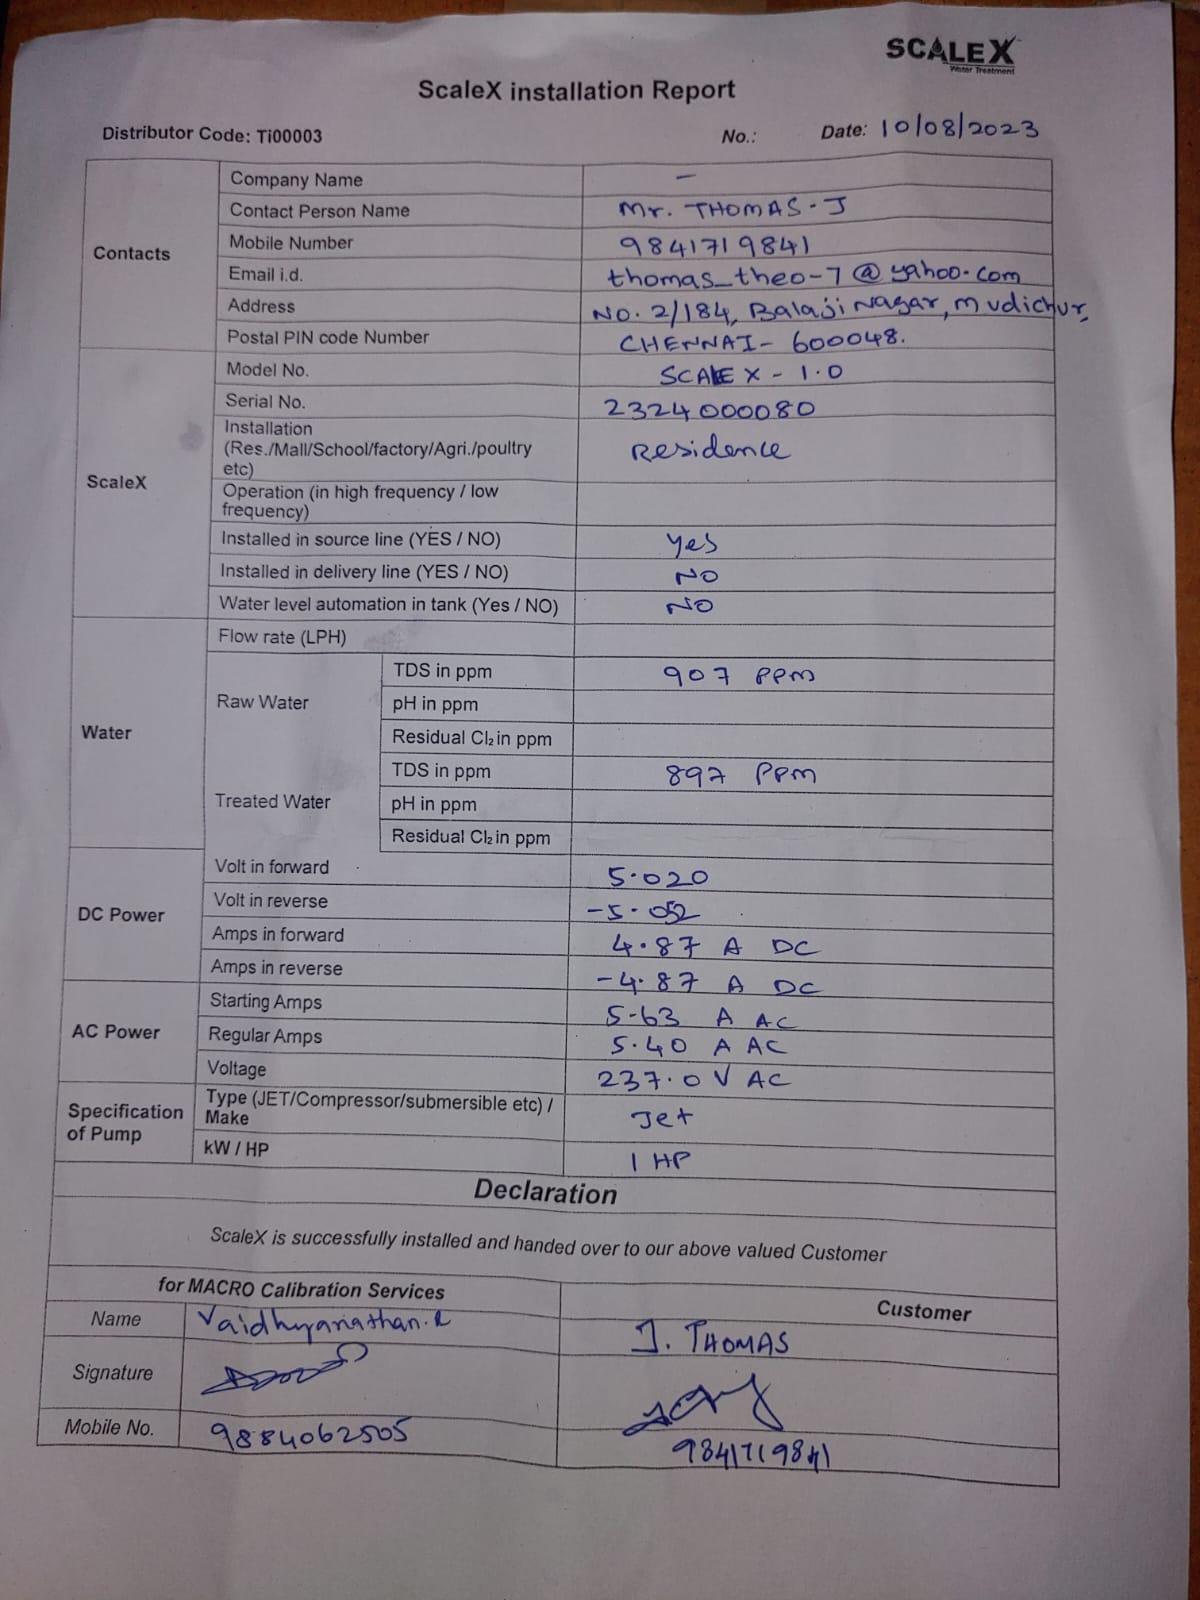 SCALEX
Water Treatment
ScaleX installation Report
Distributor Code: Ti00003 No.: Date: 10/08/2023
Contacts
Company Name –
Contact Person Name Mr. THOMAS - J
Mobile Number 9841719841
Email i.d. thomas_theo-7@yahoo.com
Address No. 2/184, Balaji Nagar, Mudichur,
Postal PIN code Number CHENNAI - 600048.
ScaleX
Model No. SCALE X - 1.0
Serial No. 2324000080
Installation
(Res./Mall/School/factory/Agri./poultry Residence
etc)
Operation (in high frequency / low
frequency)
Installed in source line (YES / NO) Yes
Installed in delivery line (YES / NO) NO
Water level automation in tank (Yes / NO) NO
Water
Flow rate (LPH)
Raw Water
TDS in ppm 907 PPM
pH in ppm
Residual Cl2 in ppm
Treated Water
TDS in ppm 897 PPM
pH in ppm
Residual Cl2 in ppm
DC Power
Volt in forward 5.020
Volt in reverse -5.052
Amps in forward 4.87 A DC
Amps in reverse -4.87 A DC
AC Power
Starting Amps 5.63 A AC
Regular Amps 5.40 A AC
Voltage 237.0 V AC
Specification
of Pump
Type (JET/Compressor/submersible etc) /
Make Jet
kW / HP 1 HP
Declaration
ScaleX is successfully installed and handed over to our above valued Customer
for MACRO Calibration Services Customer
Name Vaidhyanathan.R J. THOMAS
Signature
Mobile No. 9884062505 9841719841